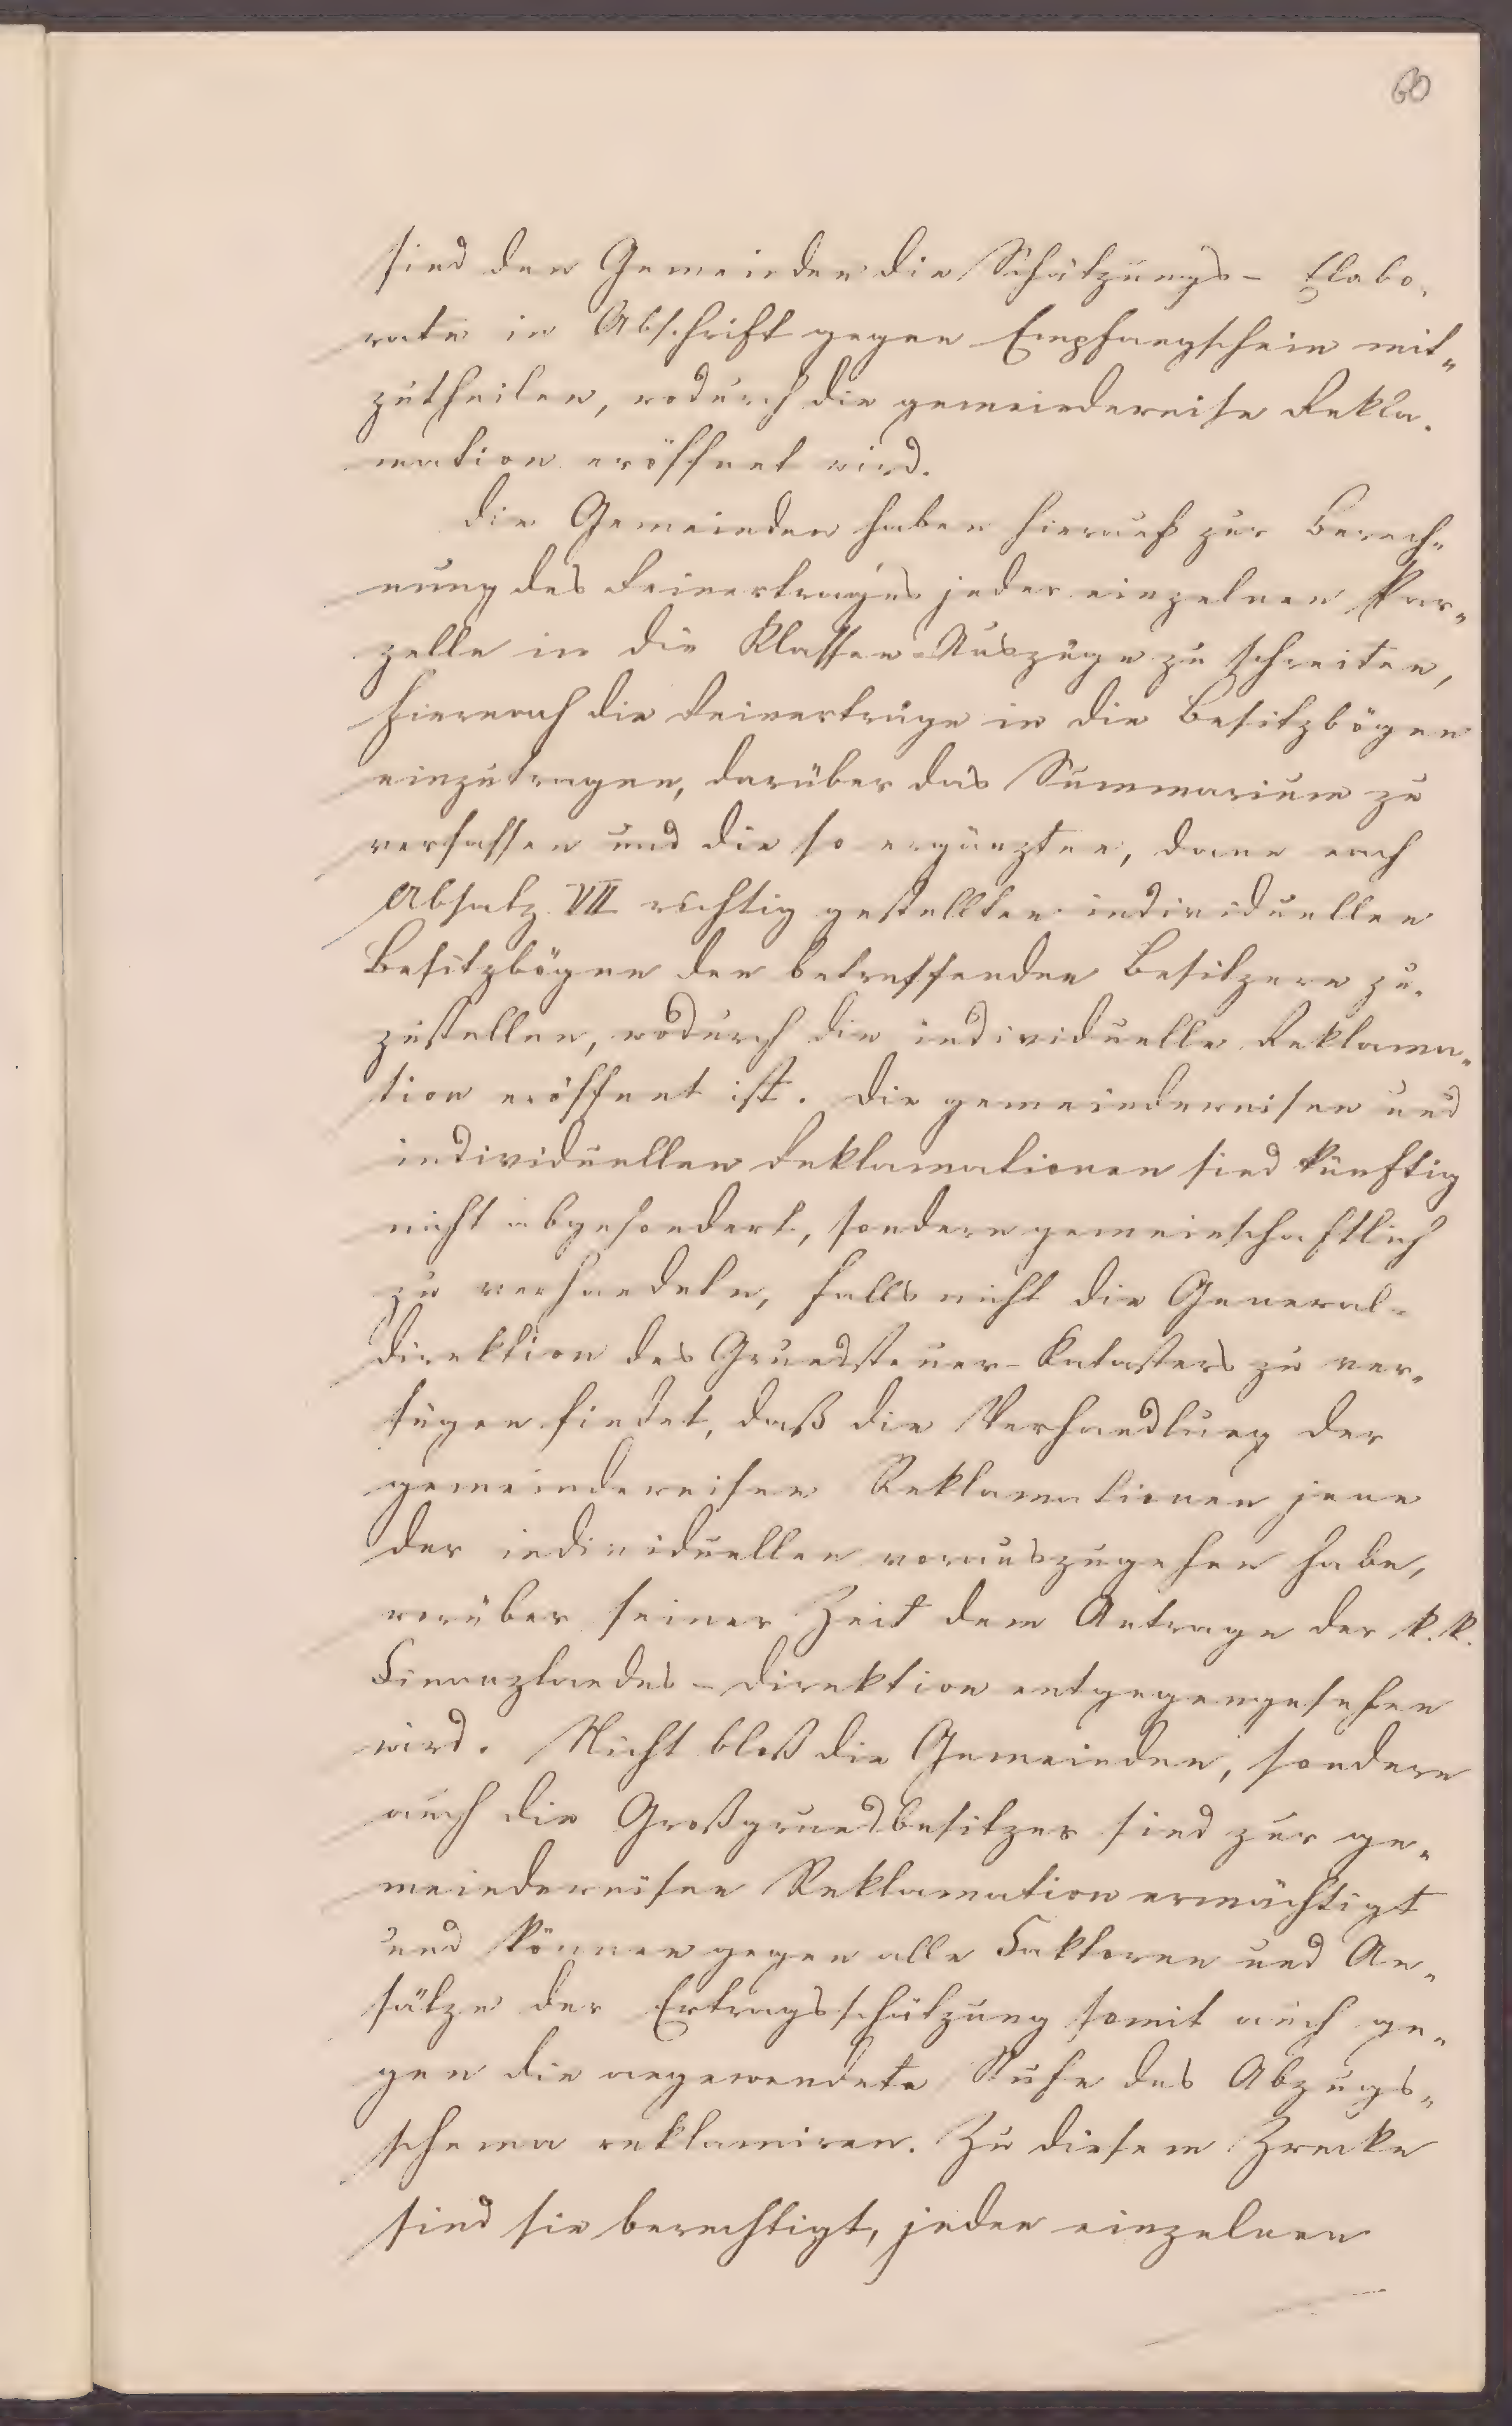 60
sind den Gemeinden die Schätzungs- Elabo-
rate in Abschrift gegen Empfangschein mit-
zutheilen, wodurch die gemeindeweise Rekla-
mation eröffnet wird.
Die Gemeinden haben hierauf zur Berech-
nung des Reinertrages jeder einzelnen Par-
zelle in die Klassen-Auszüge zu schreiten,
hiernach die Reinerträge in die Besitzbögen
einzutragen, darüber das Summarium zu
verfassen und die so ergänzten, dann nach
Absatz VII richtig gestellten individuellen
Besitzbögen den betreffenden Besitzern zu-
zustellen, wodurch die individuelle Reklama-
tion eröffnet ist. Die gemeindeweisen und
individuellen Reklamationen sind künftig
nicht abgesondert, sondern gemeinschaftlich
zu verhandeln, falls nicht die General-
direktion des Grundsteuer-Katasters zu ver-
fügen findet, daß die Verhandlung der
gemeindeweisen Reklamationen jene
der individuellen vorauszugehen habe,
worüber seiner Zeit dem Antrage der k. k.
Finanzlandes-Direktion entgegengesehen
wird. Nicht bloß die Gemeinden, sondern
auch die Großgrundbesitzer sind zur ge-
meindeweisen Reklamation ermächtigt
und können gegen alle Faktoren und An-
sätze der Ertragsschätzung somit auch ge-
gen die angewendete Stufe des Abzugs-
schema reklamiren. Zu diesem Zwecke
sind sie berechtigt, jeden einzelnen